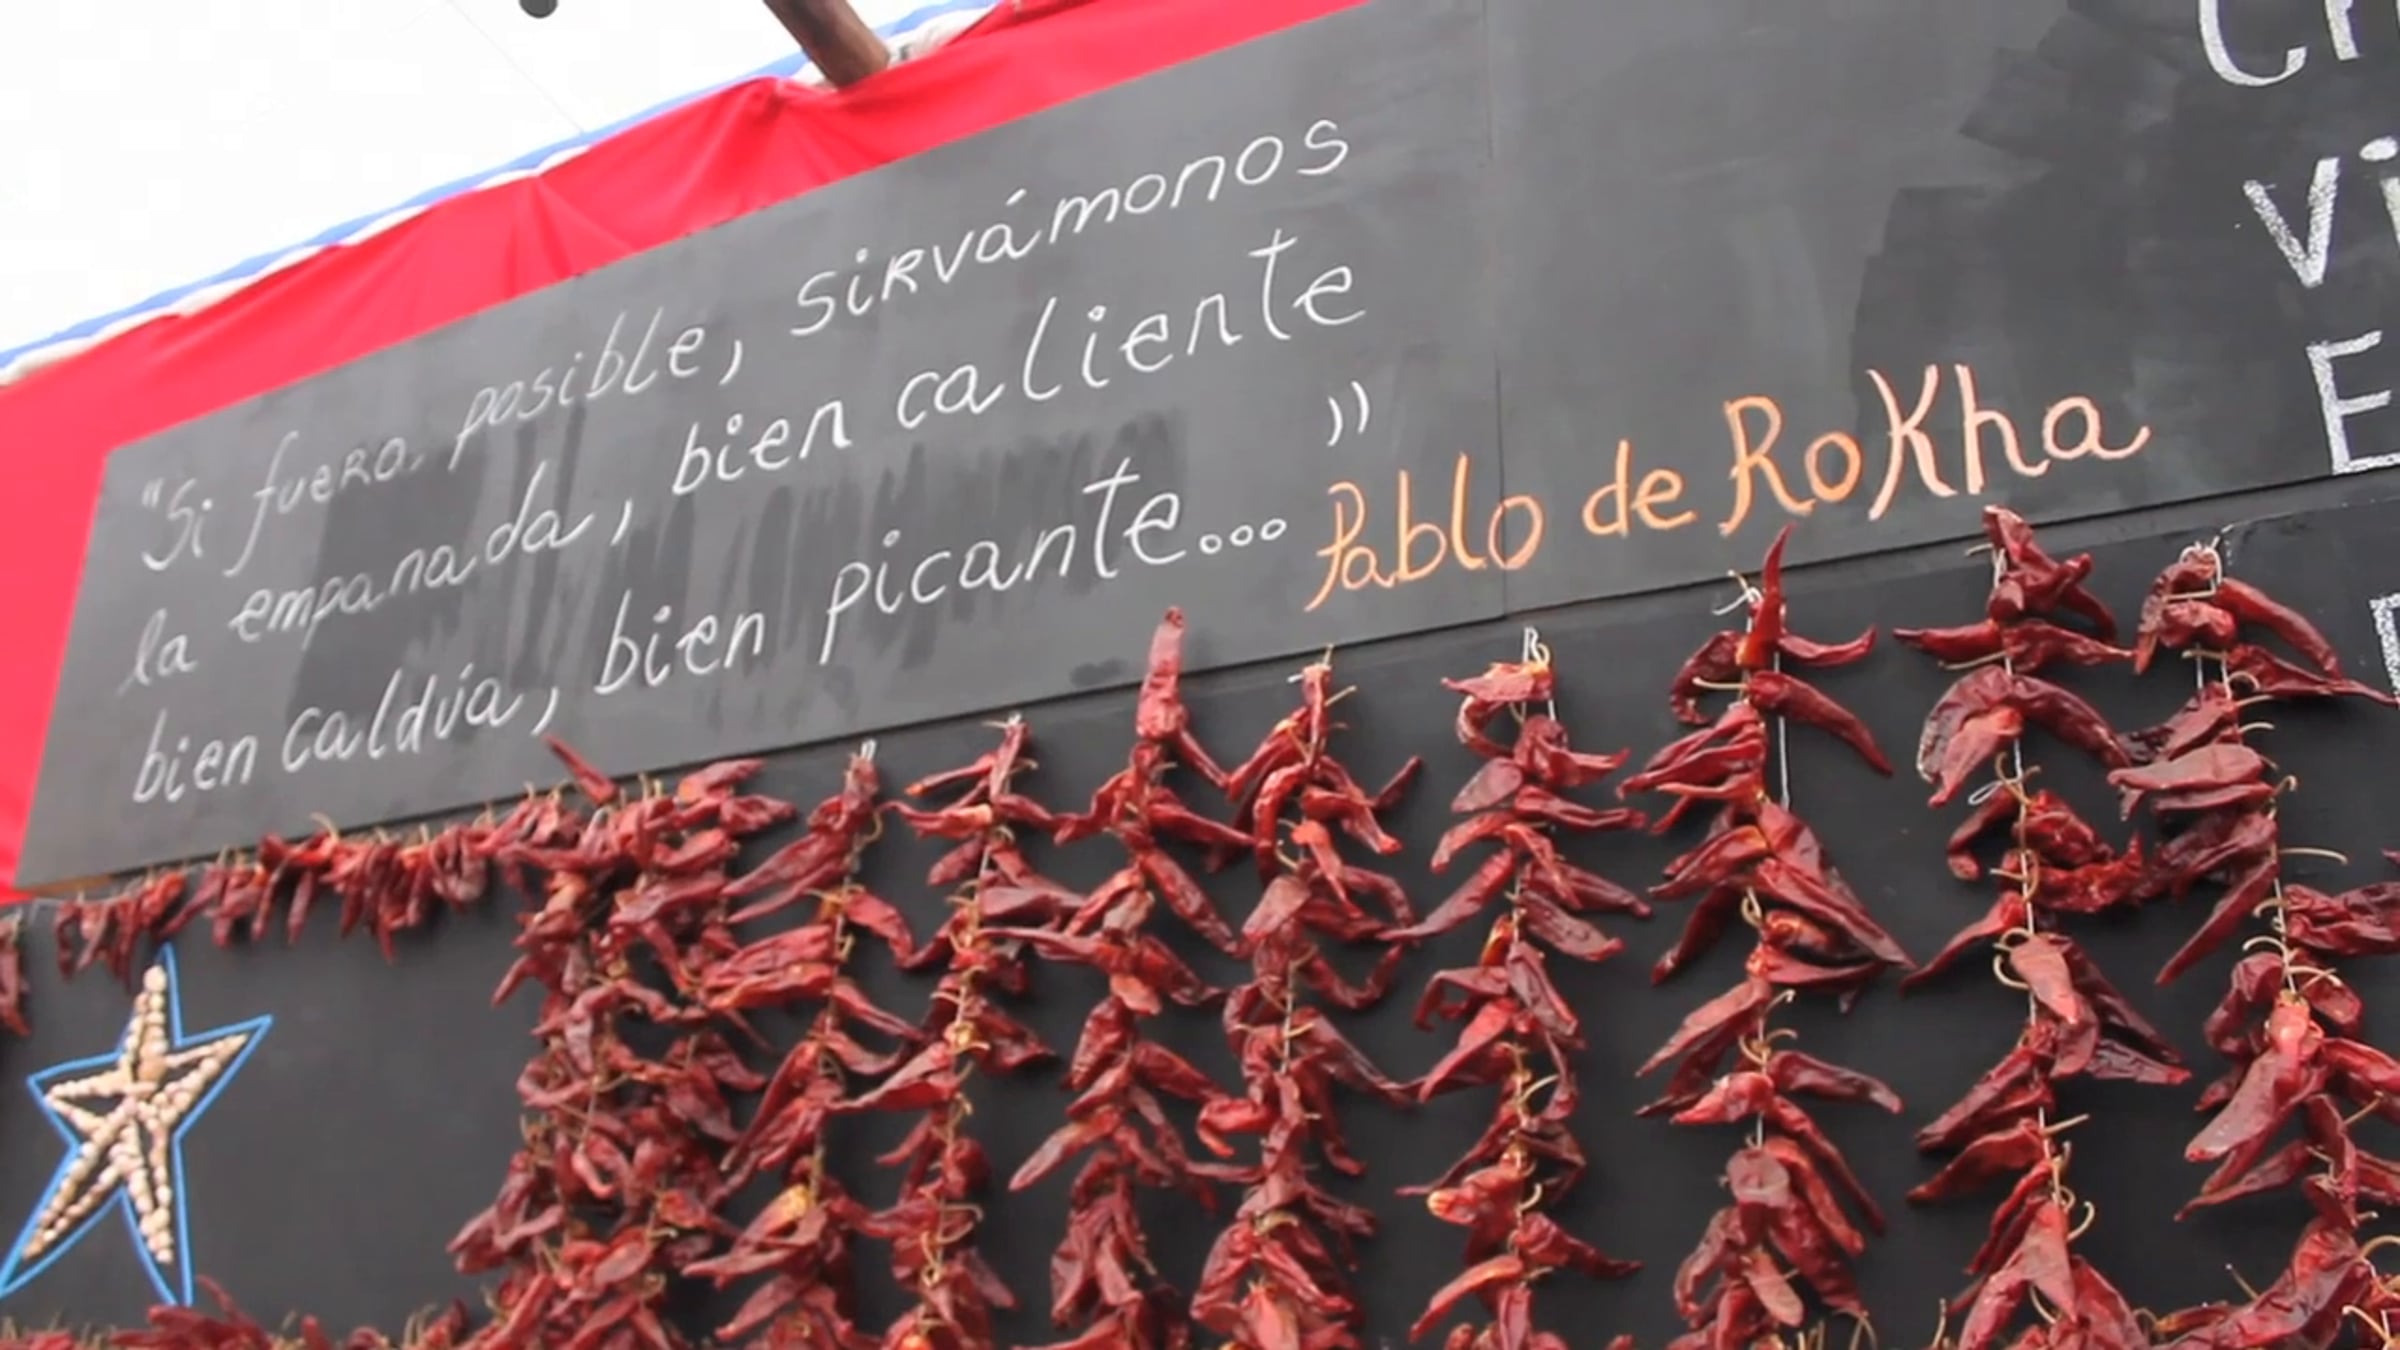 "Si fuera posible, sirvámonos
la empanada, bien caliente
bien caldúa, bien picante..."
Pablo de Rokha